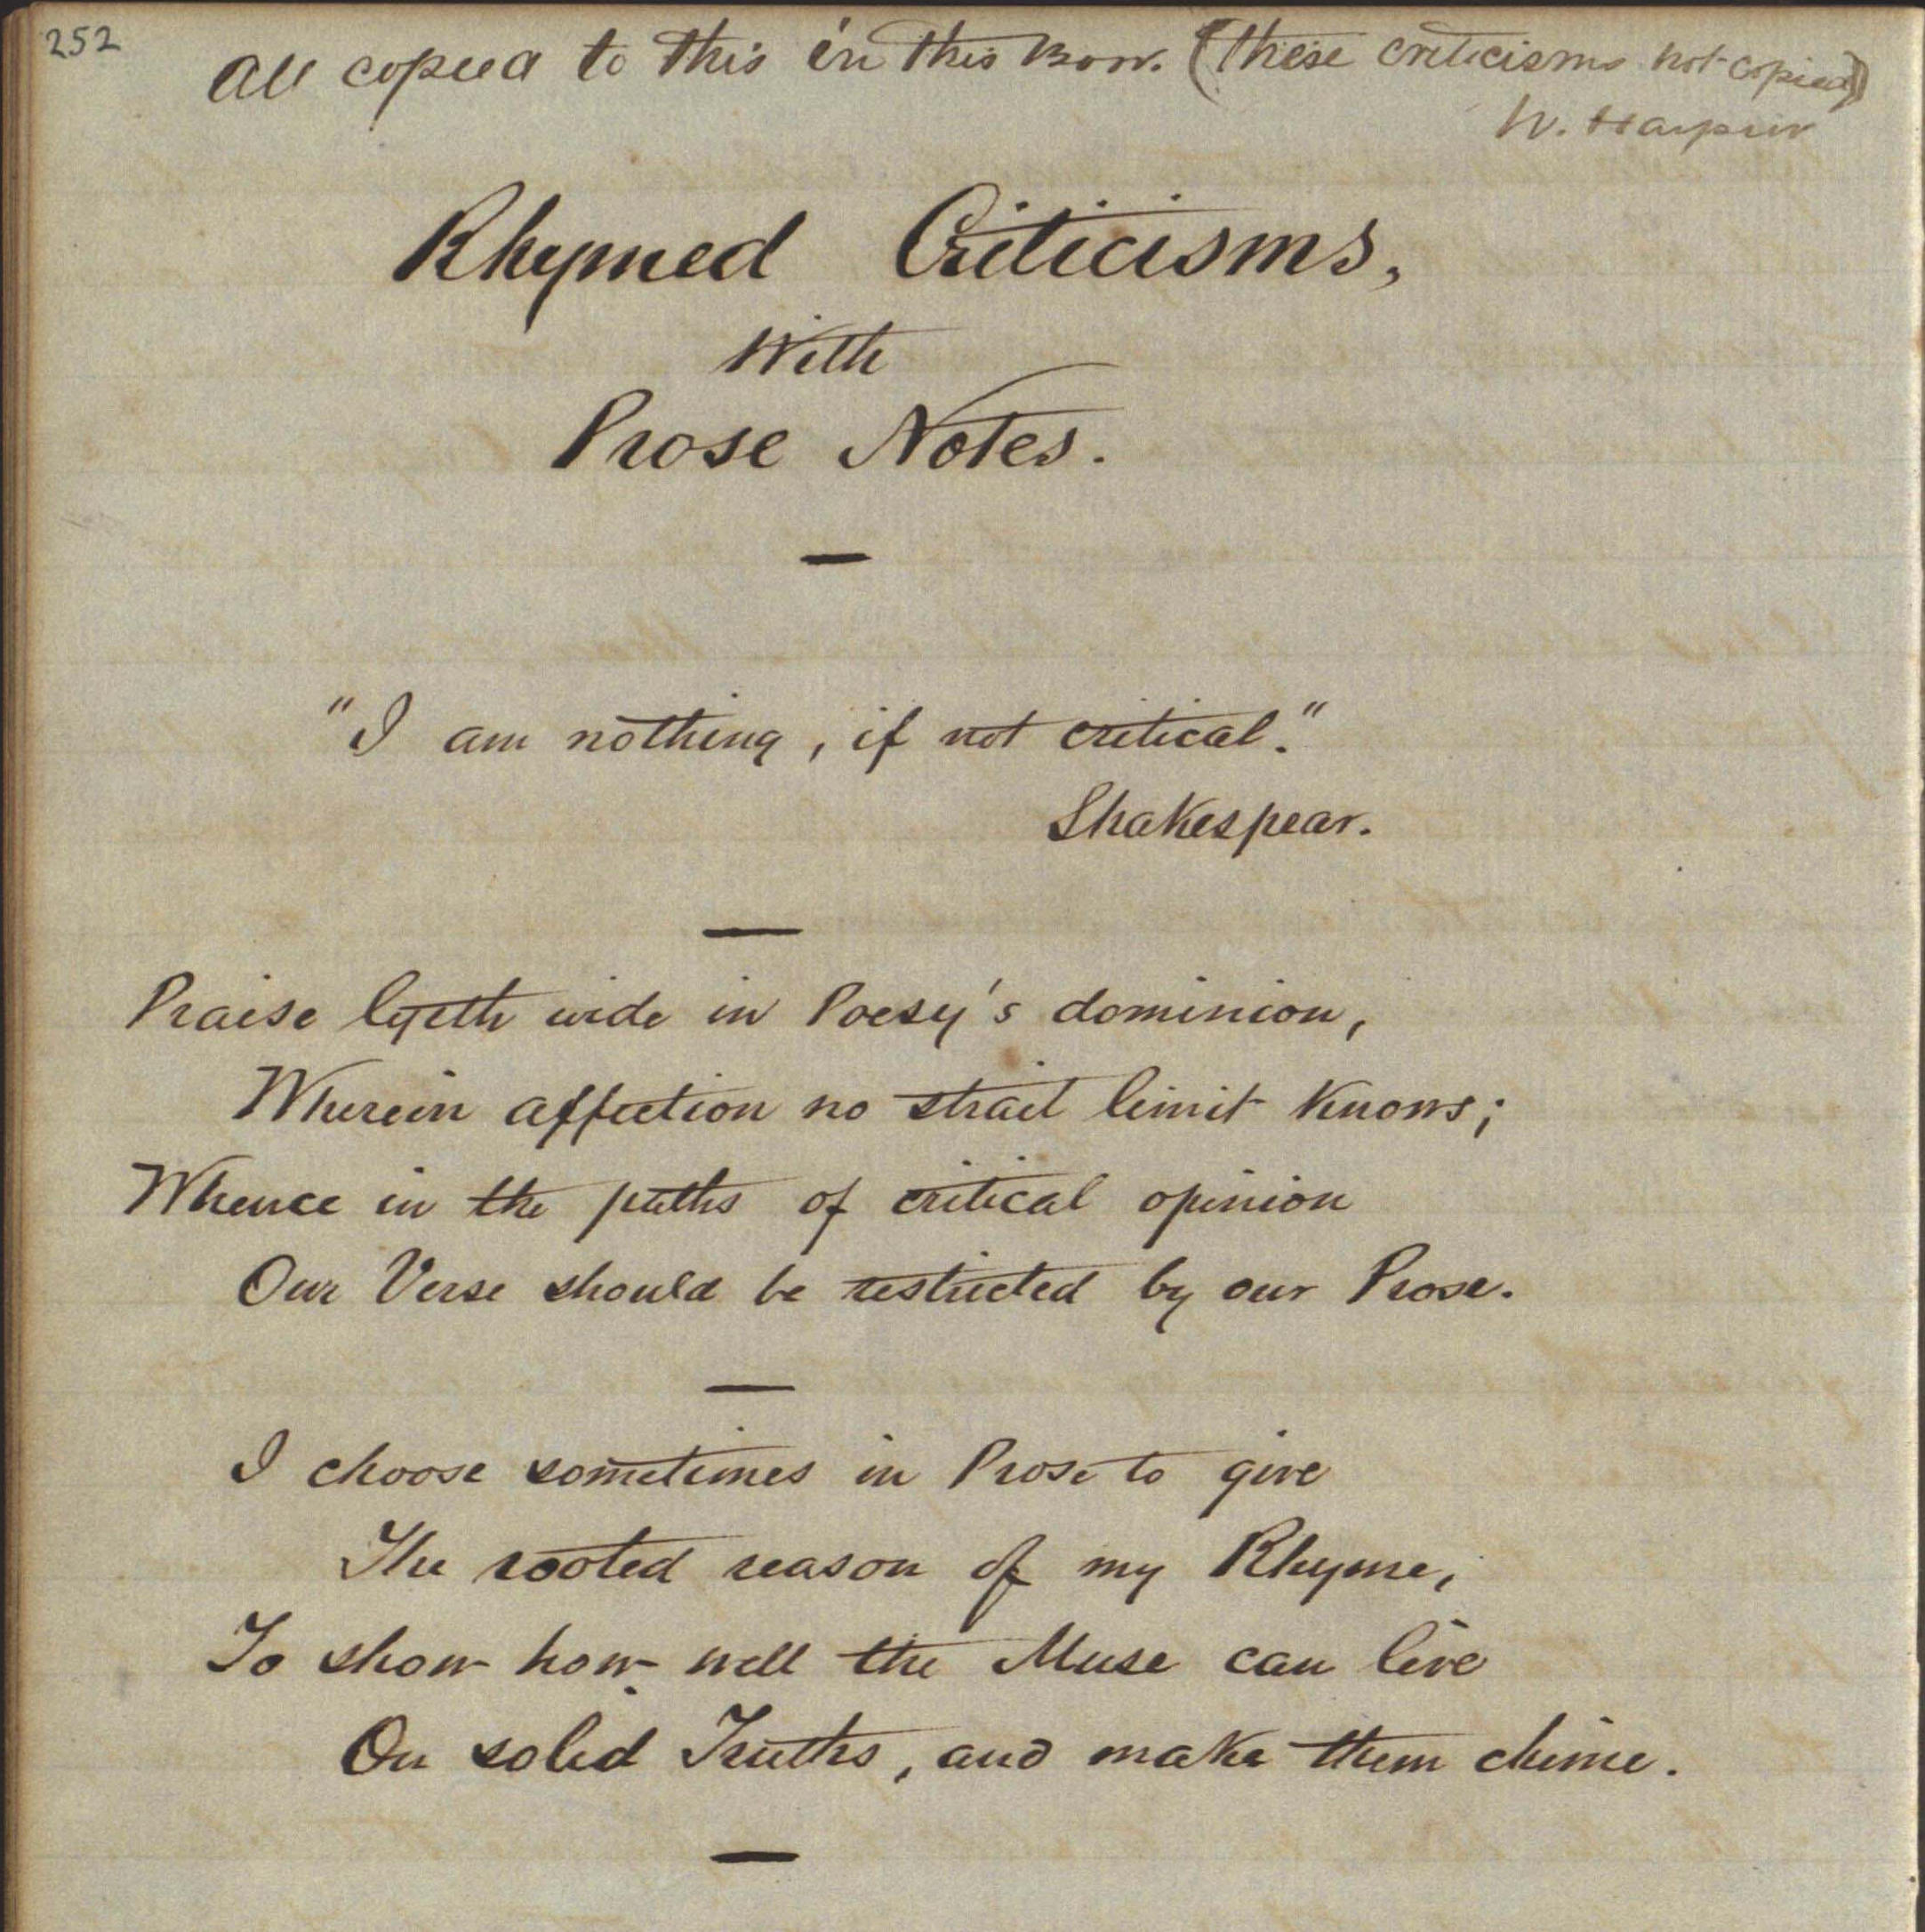 252
All copied to this in this Book. (These criticisms not copied)
W. Harpur
Rhymed Criticisms,
With
Prose Notes.
"I am nothing, if not critical."
Shakespear.
Praise lyeth wide in Poesy's dominion,
Wherein affection no strait limit knows;
Whence in the paths of critical opinion
Our Verse should be restricted by our Prose.
I choose sometimes in Prose to give
The rooted reason of my Rhyme,
To show how well the Muse can live
On solid Truths, and make them chime.